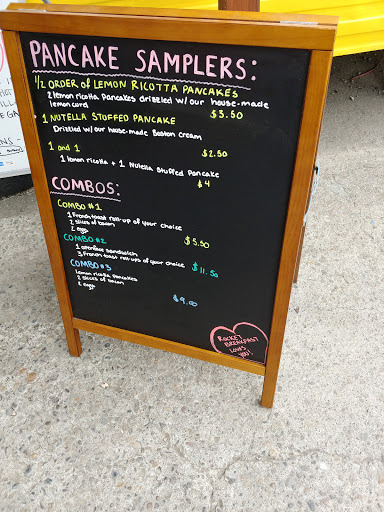 PANCAKE SAMPLERS:
1/2 ORDER of LEMON RICOTTA PANCAKES
2 lemon ricotta pancakes drizzled w/ our house-made
lemon curd $3.50
1 NUTELLA STUFFED PANCAKE
Drizzled w/ our house-made Boston cream
$2.50
1 and 1
1 lemon ricotta + 1 Nutella Stuffed Pancake
$4
COMBOS:
COMBO #1
1 French toast roll-up of your choice
2 slices of bacon
2 eggs $5.50
COMBO #2
1 openface sandwich
3 French toast roll-ups of your choice $11.50
COMBO #3
lemon ricotta pancakes
2 slices of bacon
2 eggs
$9.00
ROCKET
BREAKFAST
LOVES
YOU!